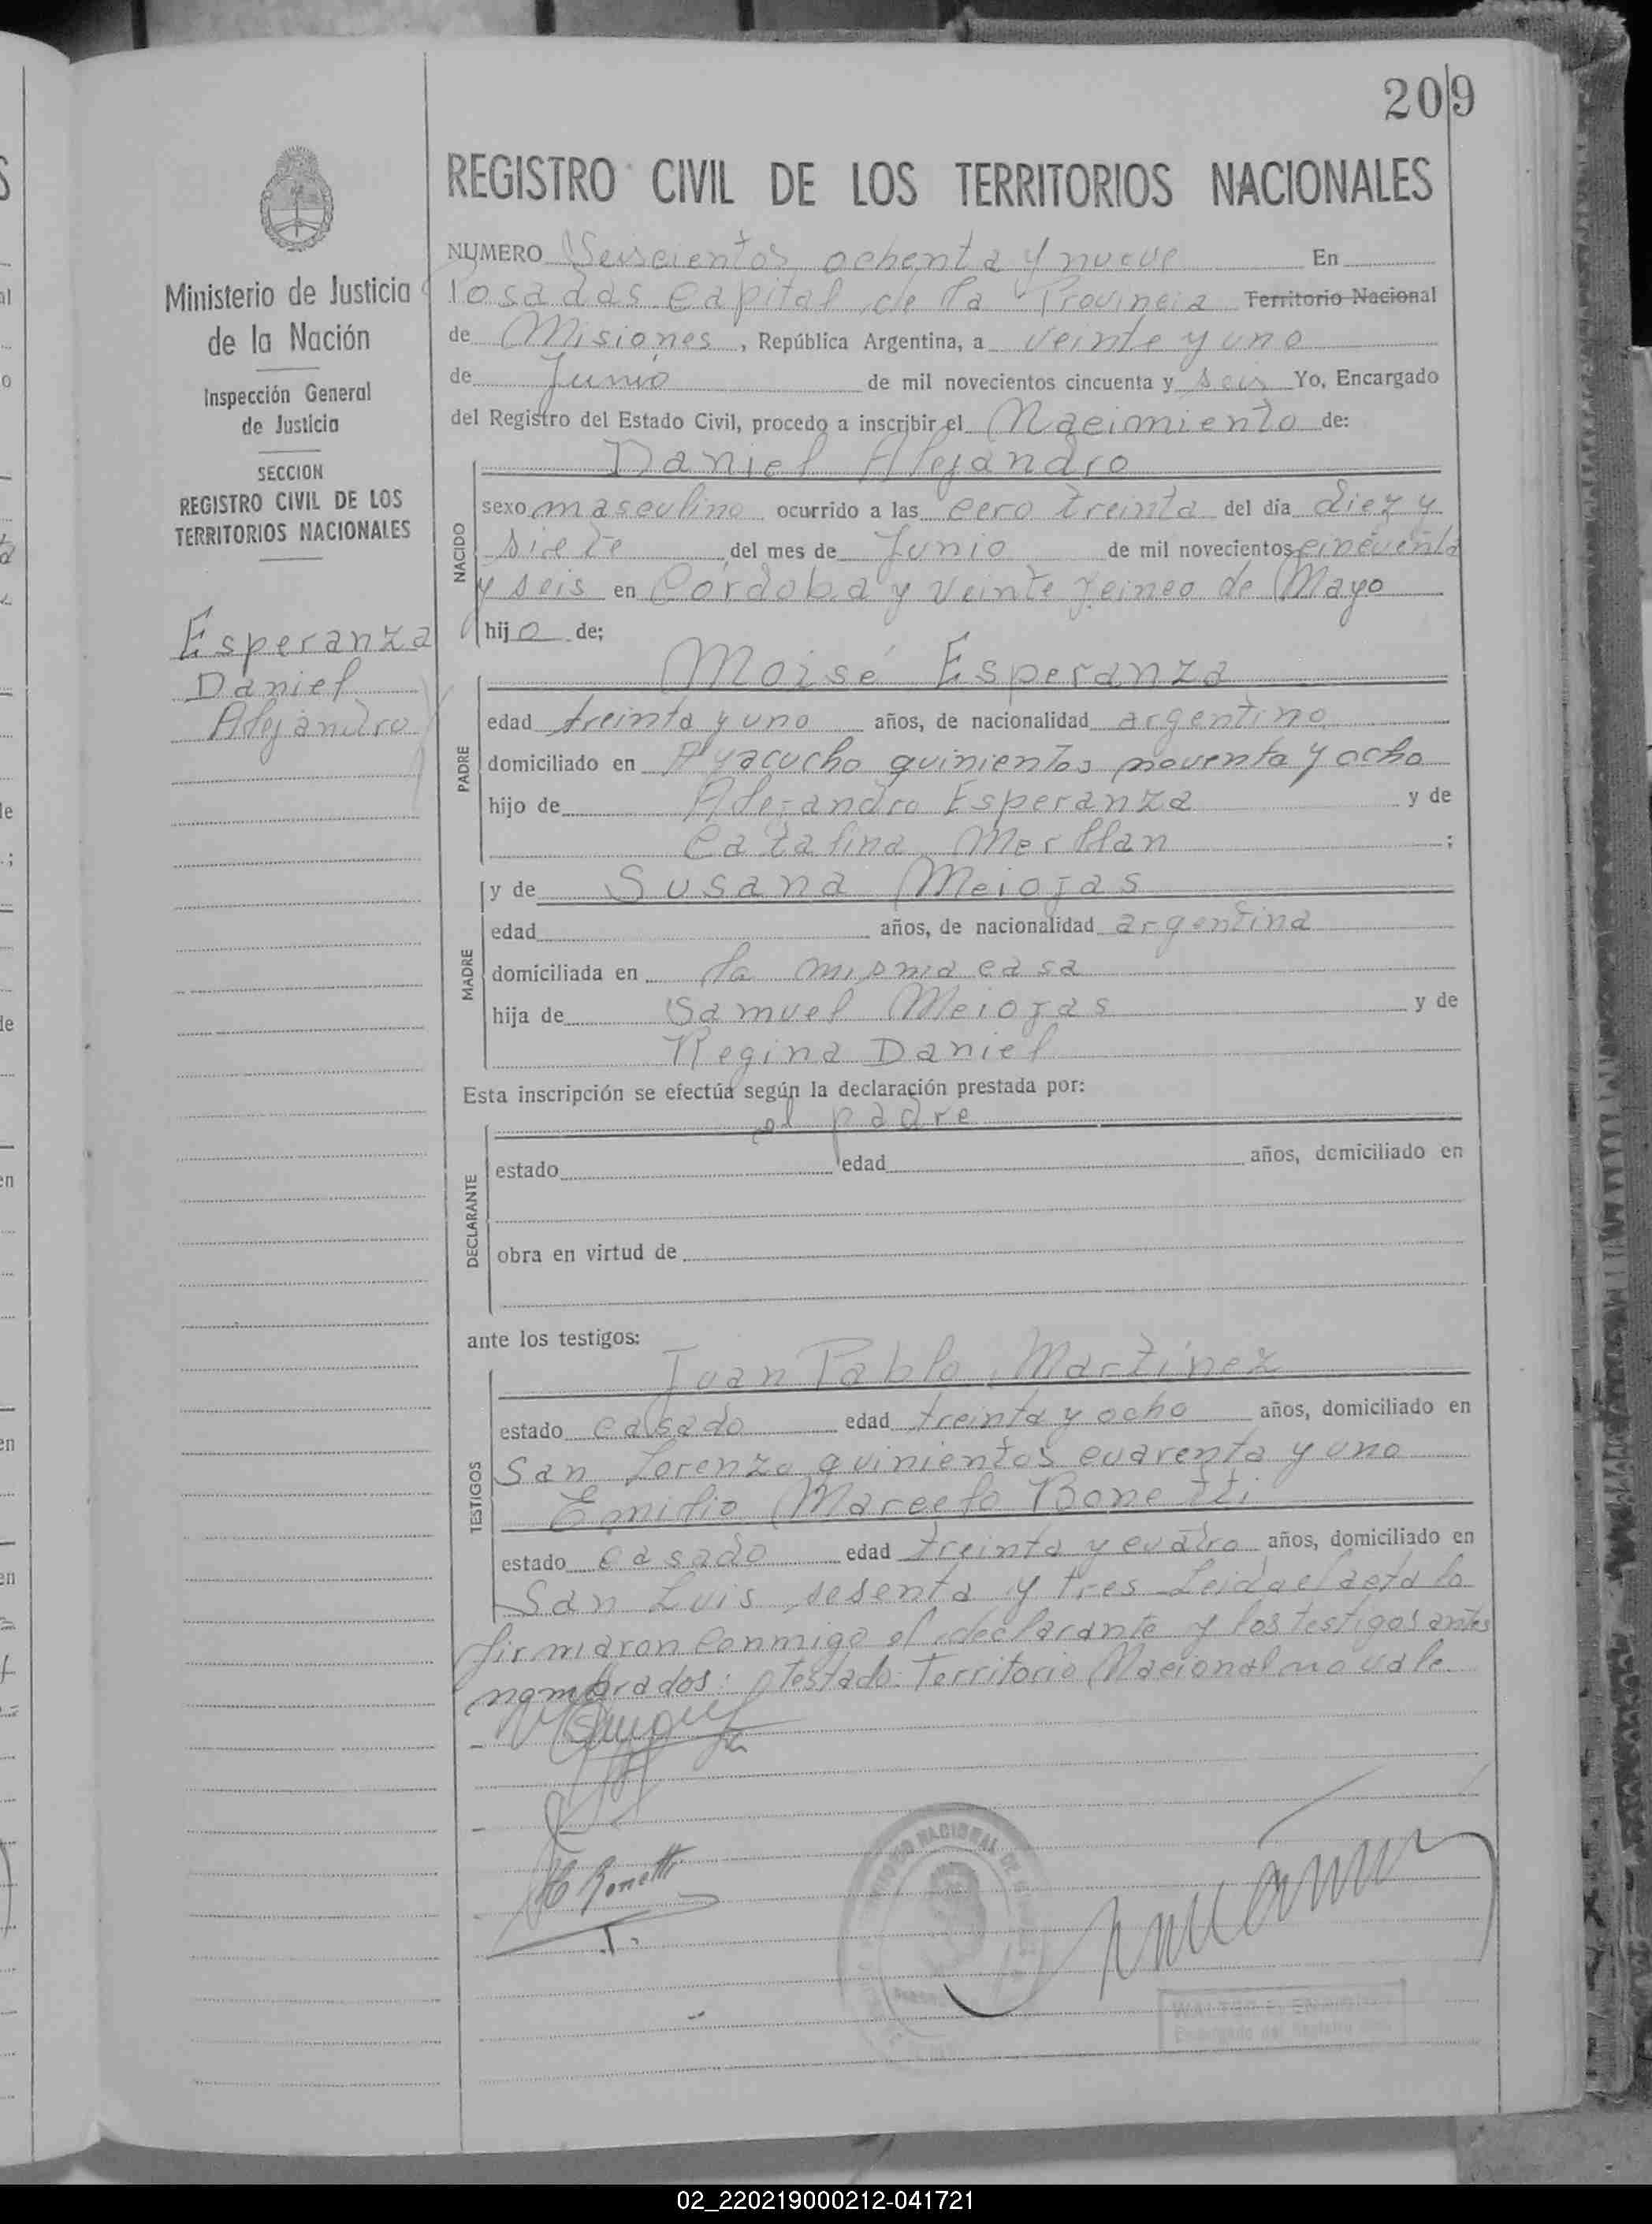 209
REGISTRO CIVIL DE LOS TERRITORIOS NACIONALES
Ministerio de Justicia
de la Nación
Inspección General
de Justicia
SECCION
REGISTRO CIVIL DE LOS
TERRITORIOS NACIONALES
Esperanza
Daniel
Alejandro
NUMERO Seiscientos ochenta y nueve En
Posadas Capital de la Provincia Territorio Nacional
de Misiones, República Argentina, a veinte y uno
de Junio de mil novecientos cincuenta y seis Yo, Encargado
del Registro del Estado Civil, procedo a inscribir el Nacimiento de:
Daniel Alejandro
NACIDO
sexo masculino ocurrido a las cero treinta del día diez y
siete del mes de Junio de mil novecientos cincuenta
y seis en Córdoba y veinte y cinco de Mayo
hijo de;
PADRE
Moisé Esperanza
edad treinta y uno años, de nacionalidad argentino
domiciliado en Ayacucho quinientos noventa y ocho
hijo de Alejandro Esperanza y de
Catalina ;
MADRE
y de Susana Meiojas
edad años, de nacionalidad argentina
domiciliada en la misma casa
hija de Samuel Meiojas y de
Regina Daniel
Esta inscripción se efectúa según la declaración prestada por:
DECLARANTE
el padre
estado edad años, domiciliado en
obra en virtud de
ante los testigos:
TESTIGOS
Juan Pablo Martínez
estado casado edad treinta y ocho años, domiciliado en
San Lorenzo quinientos cuarenta y uno
Emilio Marcelo Bonetti
estado casado edad treinta y cuatro años, domiciliado en
San Luis sesenta y tres Leida el acta la
firmaron conmigo el declarante y los testigos antes
nombrados: testado: Territorio Nacional no vale
Bonetti
02_220219000212-041721